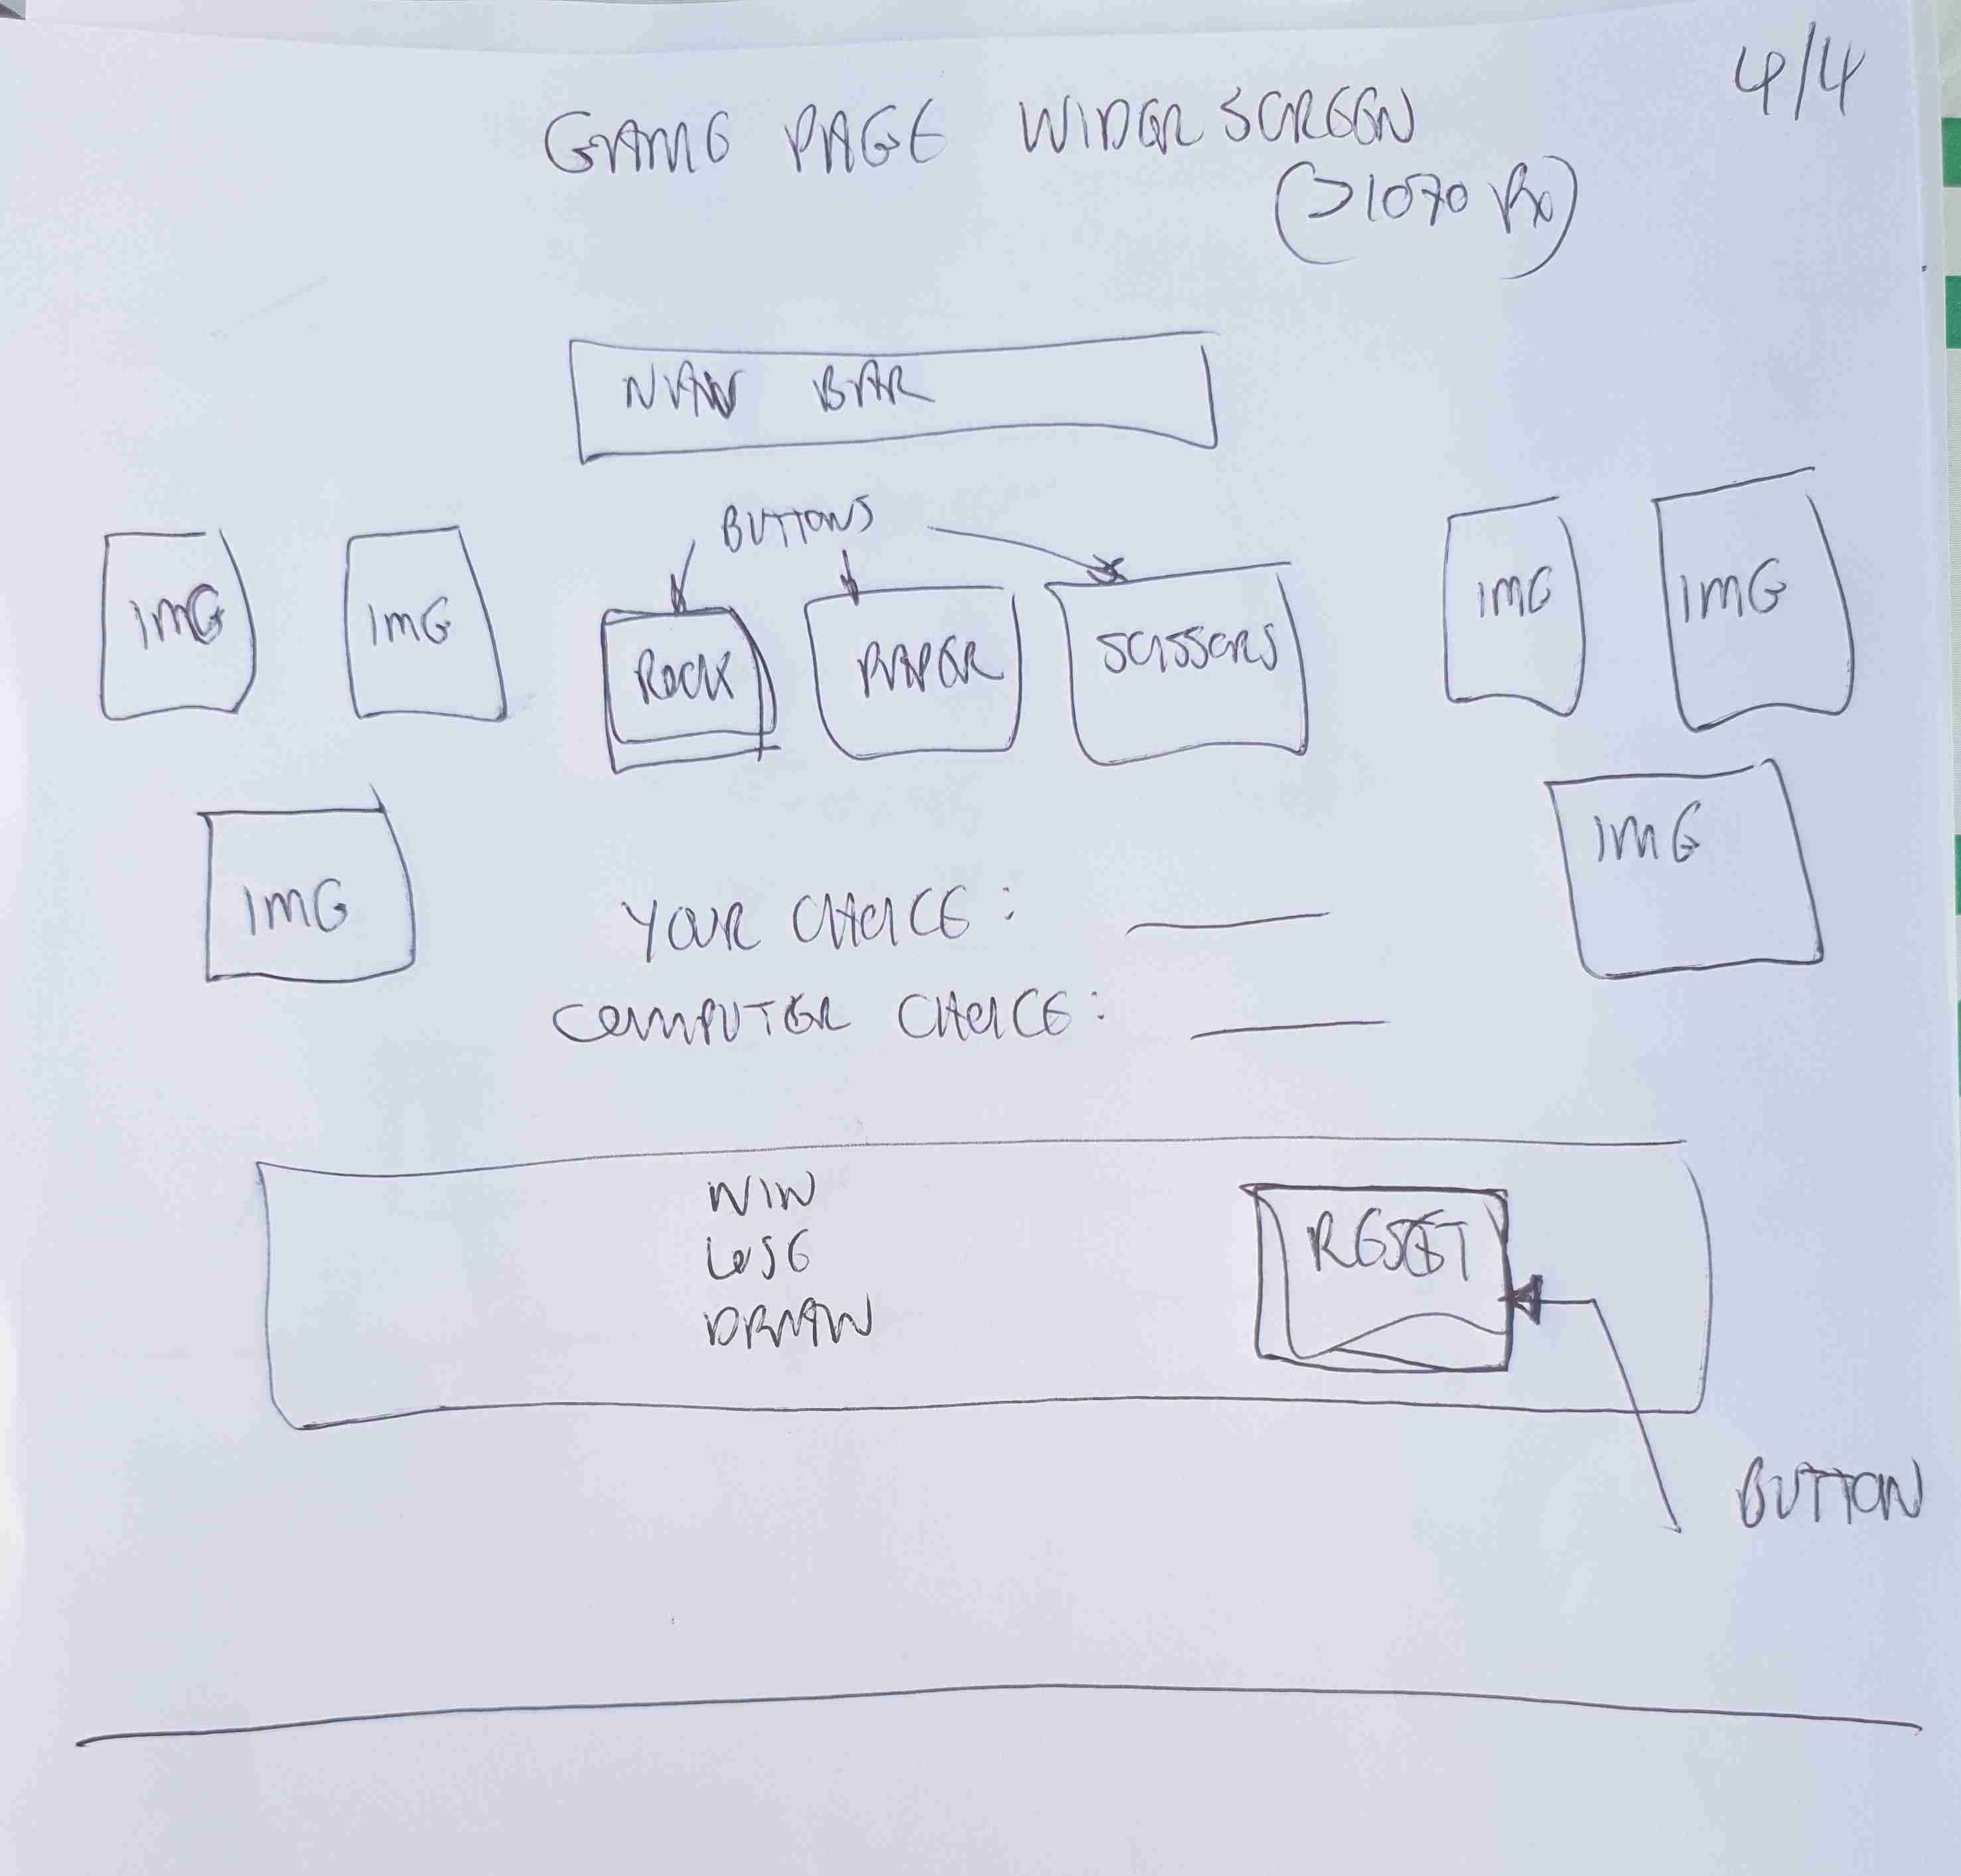 4/4
GAME PAGE WIDER SCREEN
(>1070 PX)
NAV BAR
BUTTONS
IMG IMG ROCK PAPER SCISSORS IMG IMG
IMG IMG
YOUR CHOICE:
COMPUTER CHOICE:
WIN
LOSE
DRAW
RESET
BUTTON